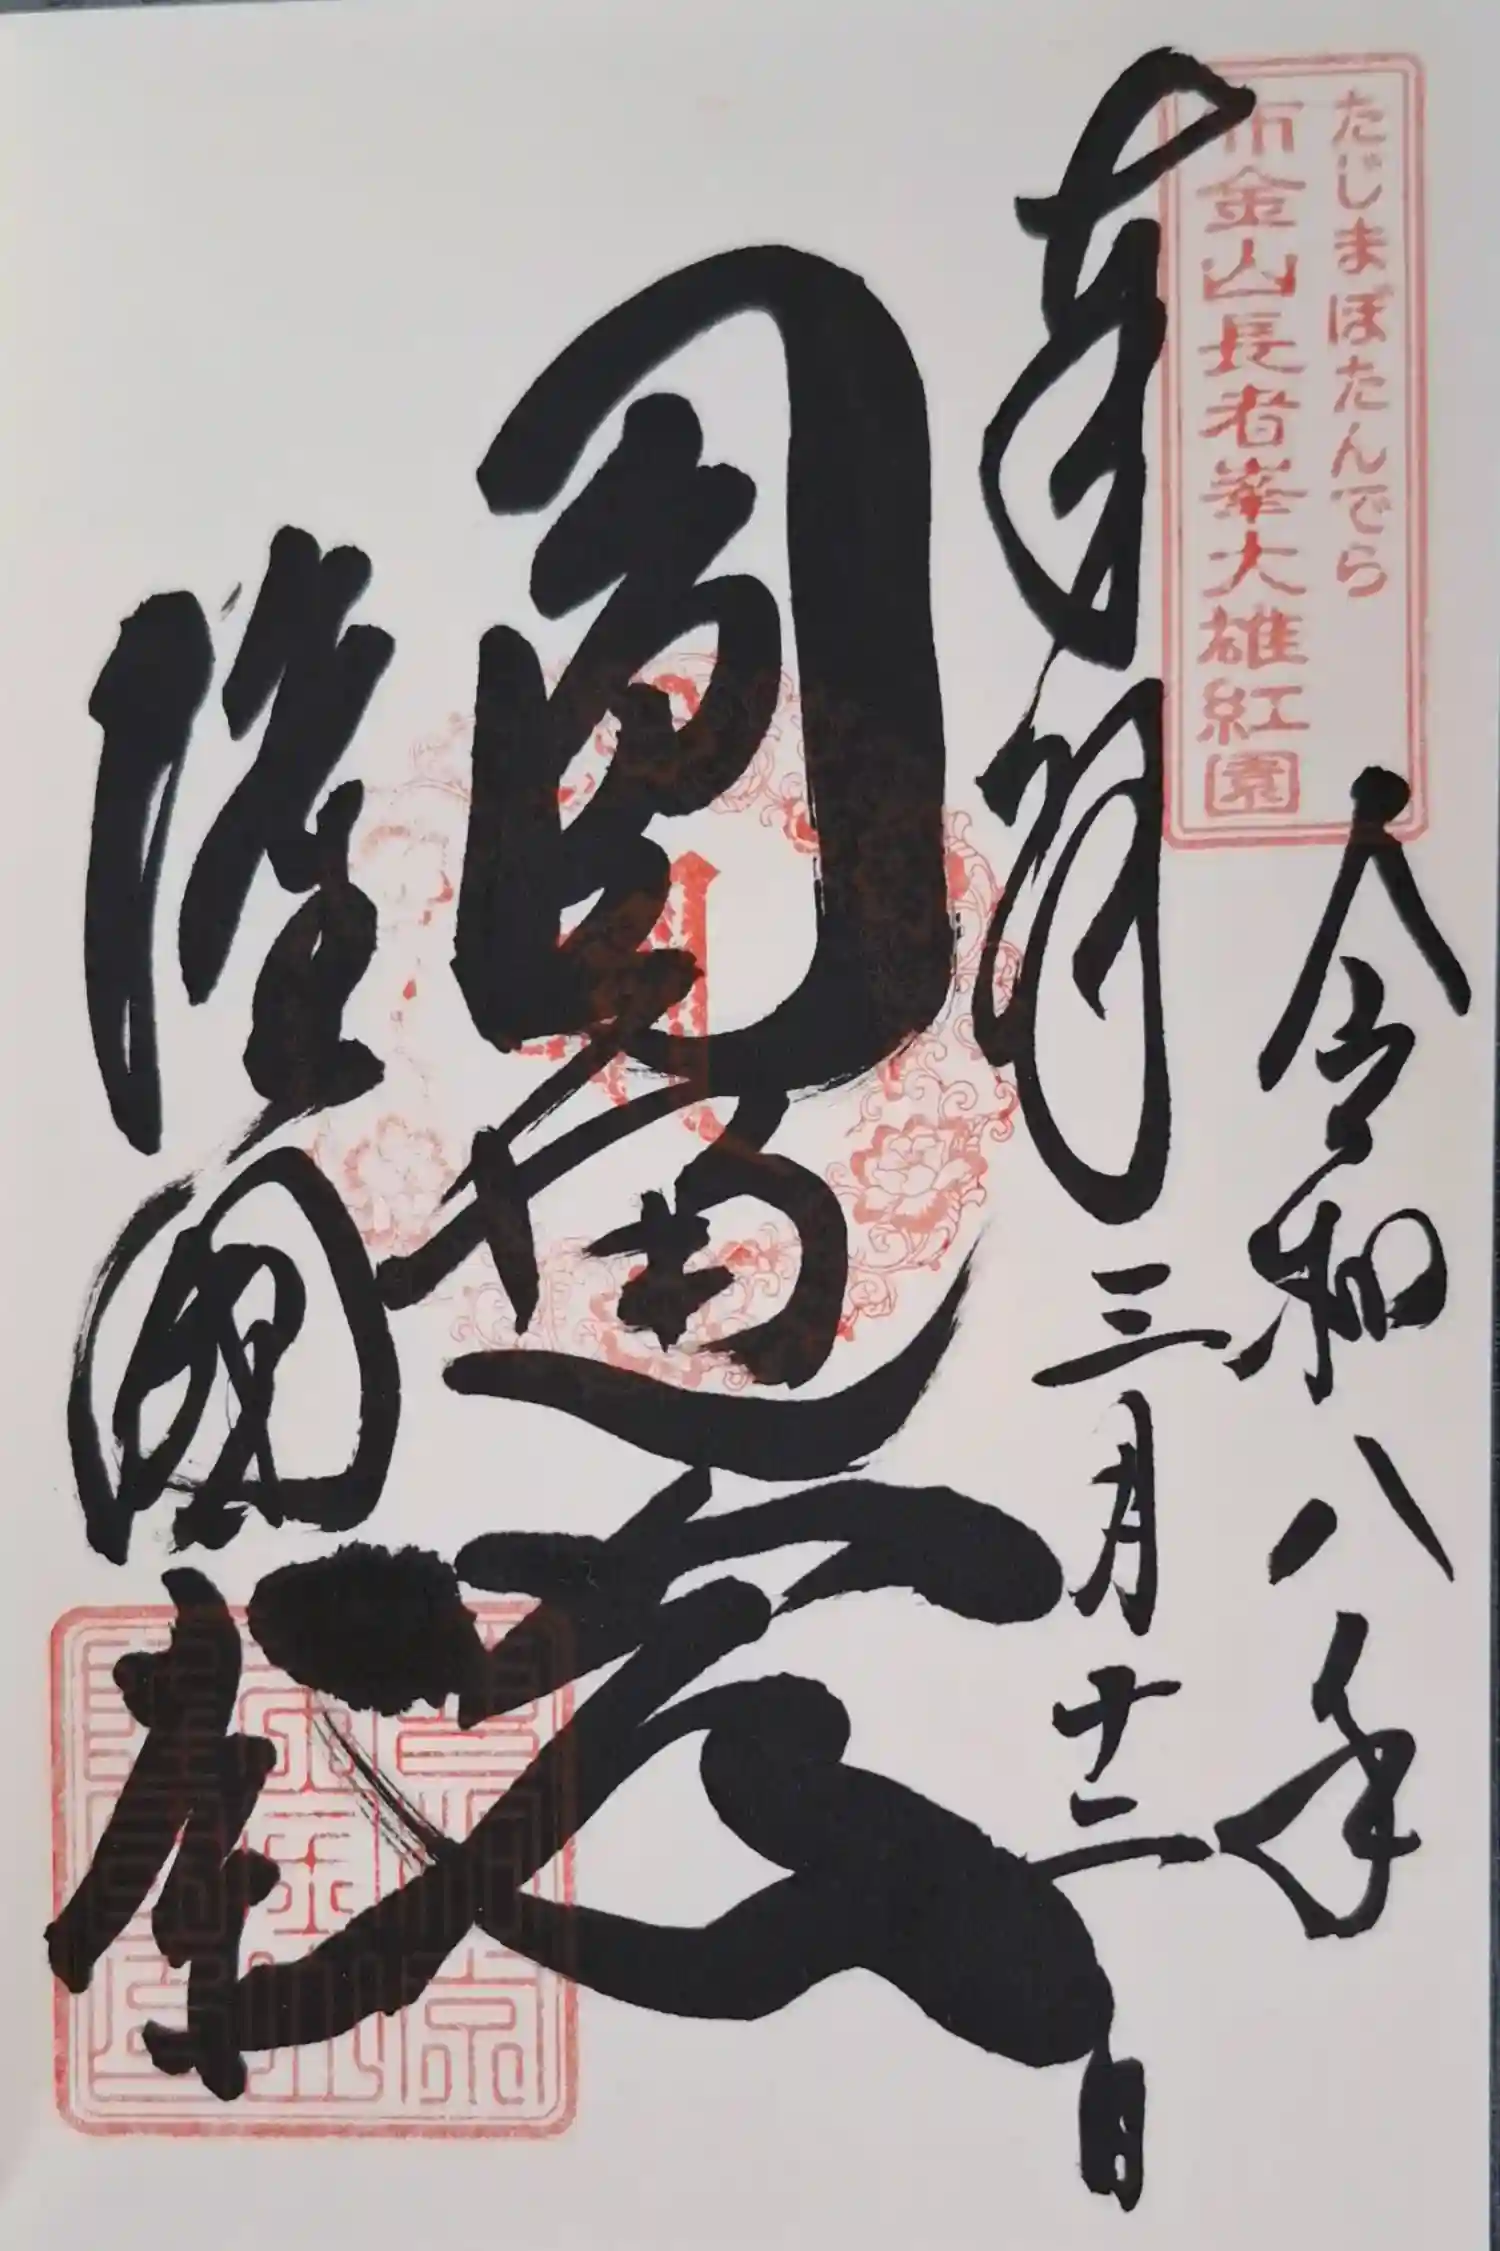 たじまぼたんでら
布金山長者峯大雄紅園
令和八年
奉拝
三月十二日
圓通
隆國寺